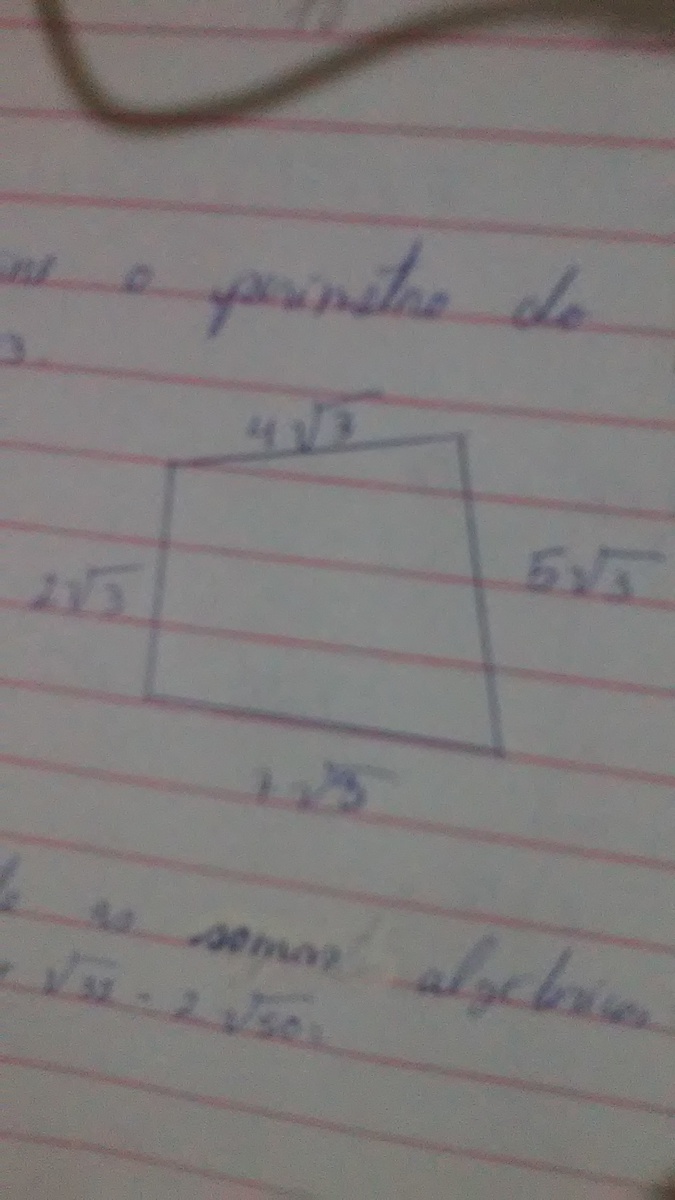 o perimetro do
3.
4√3
2√3
5√3
7√3
as somas algebricas
√32 - 2√50